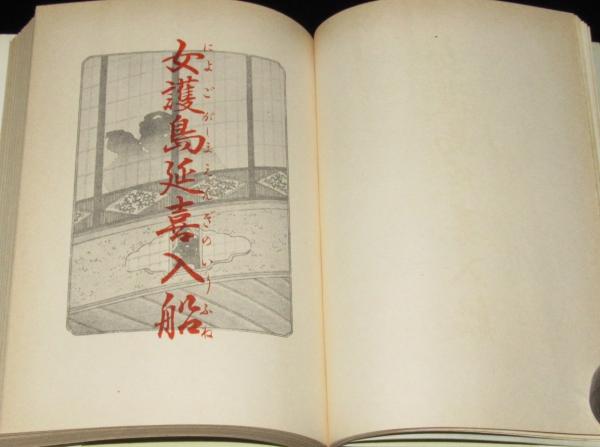 女護島延喜入船
によごがしまえんぎのいりふね